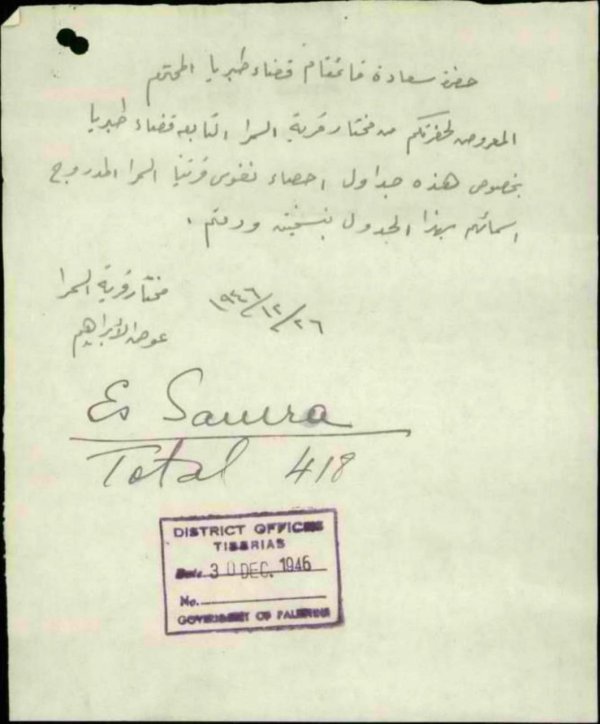 حضرة سعادة قائمقام قضاء طبريا المحترم
المعروض لحضرتكم من مختار قرية السمرا التابعه قضاء طبريا
بخصوص هذه جداول احصاء نفوس قريتنا السمرا المدروج
اسمائهم بهذا الجدول بنسختين ودمتم .
مختار قرية السمرا
١٩٤٦/١٢/٢٦
عوض الأبراهيم
Es Samra
Total 418
DISTRICT OFFICES
TIBERIAS
Date 30 DEC. 1946
No.
GOVERNMENT OF PALESTINE